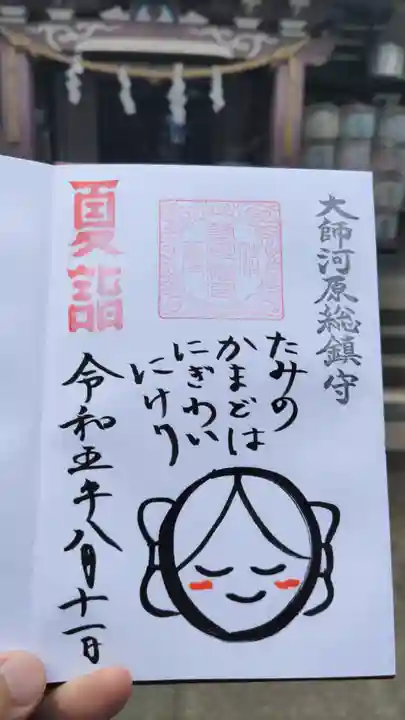 大師河原総鎮守
たみの
かまどは
にぎわい
にけり
夏詣
令和五年八月十一日